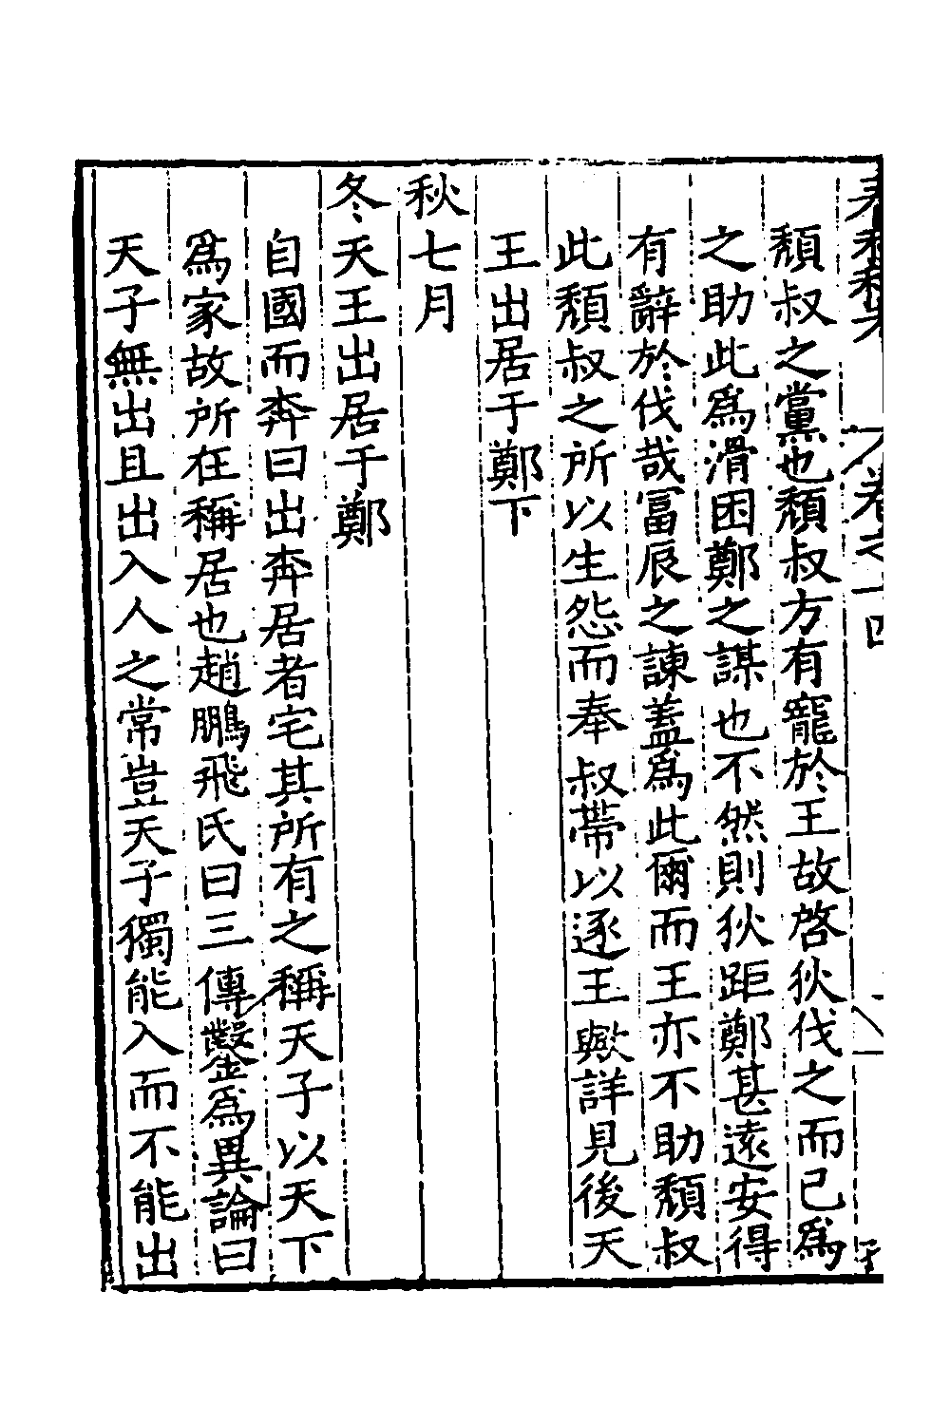 卷之十四
頽叔之黨也頽叔方有寵於王故啓狄伐之而已爲
之助此爲滑困鄭之謀也不然則狄距鄭甚遠安得
有辭於伐哉冨辰之諫蓋爲此爾而王亦不助頽叔
此頽叔之所以生怨而奉叔帶以逐王歟詳見後天
王出居于鄭下
秋七月
冬天王出居于鄭
自國而奔曰出奔居者宅其所有之稱天子以天下
爲家故所在稱居也趙鵬飛氏曰三傳鑿爲異論曰
天子無出且出入人之常豈天子獨能入而不能出